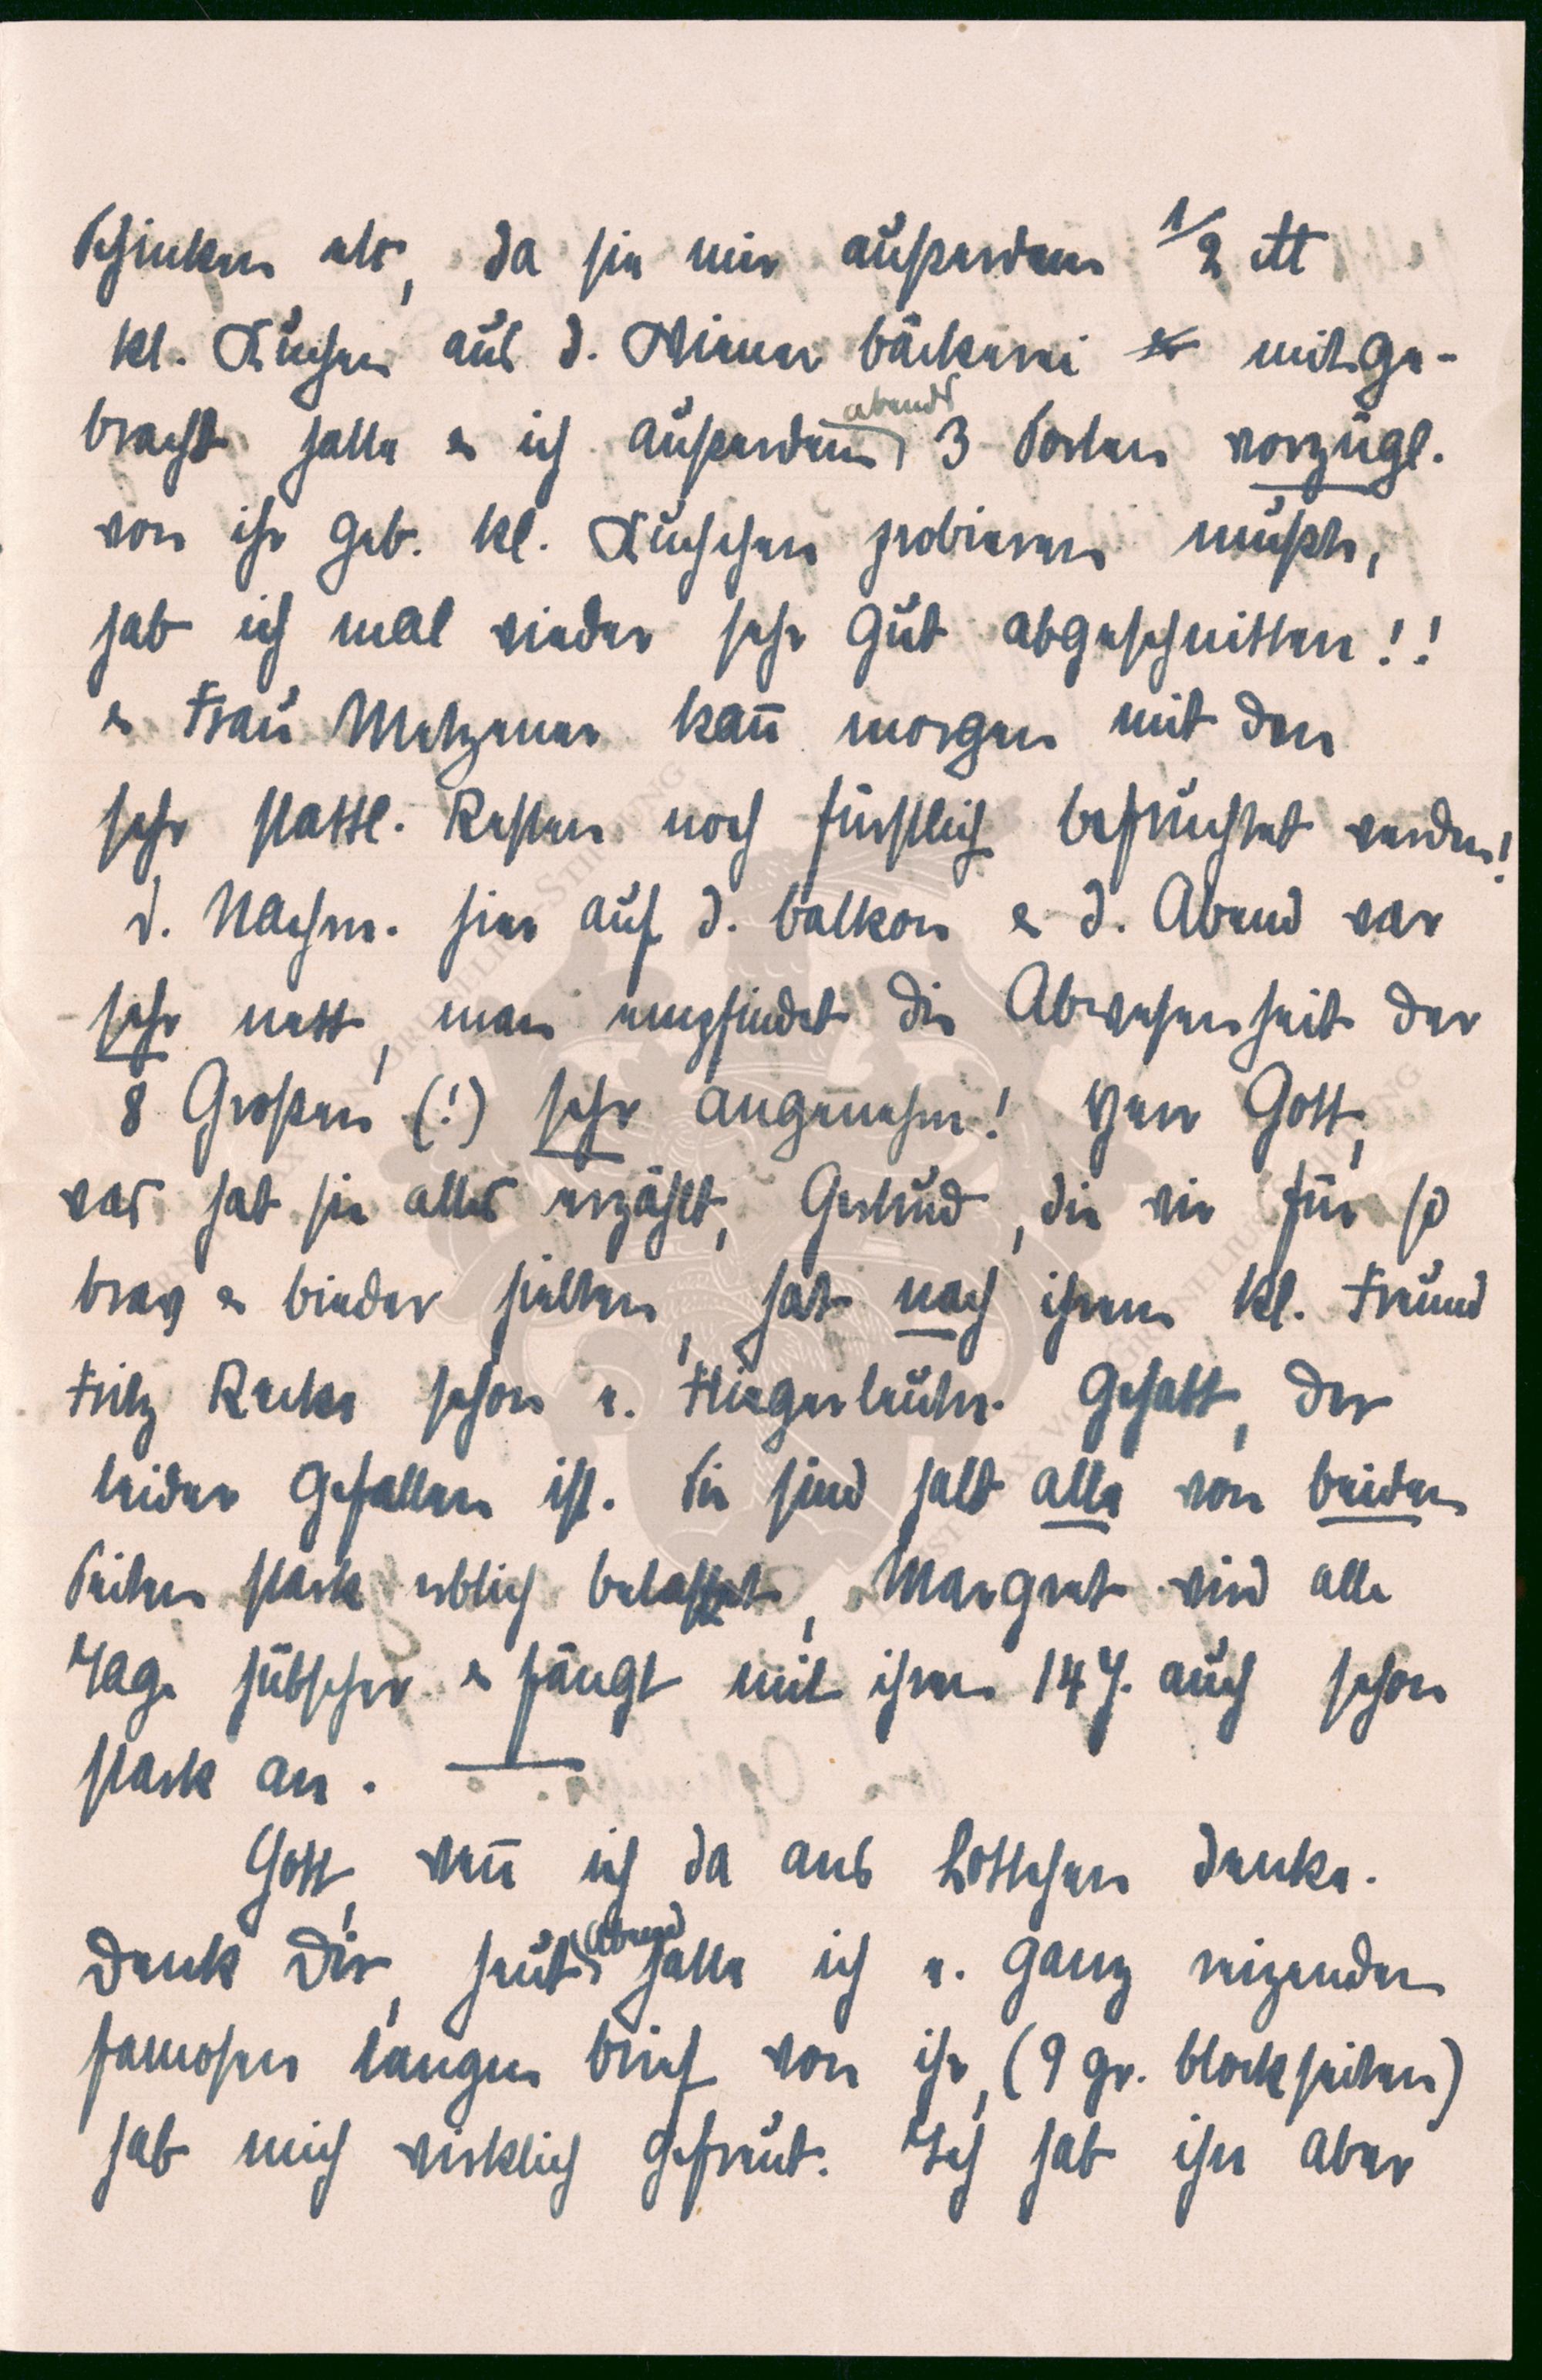 Schinken etc, da sie mir außerdem 1/2 ℔
kl. Kuchen aus d. Wiener Bäckerei mitge-
bracht hatte & ich außerdem abends 3 Sorten vorzügl.
von ihr geb. kl. Küchchen probieren mußte,
hab ich mal wieder sehr gut abgeschnitten!!
& Frau Metzener kan̄ morgen mit den
sehr stattl. Resten noch fürstlich befruchtet werden!
D. Nachm. hier auf d. Balkon & d. Abend war
sehr nett, man empfindet die Abwesenheit der
8 Großen (!) sehr angenehm! Herr Gott,
was hat sie alles erzählt, Gertrud, die wir für so
brav & bieder hielten, hat nach ihrem kl. Freund
Fritz Recke schon e. Fliegerleutn. gehabt, der
leider gefallen ist. Sie sind halt alle von beiden
Seiten stark erblich belastet, Margret wird alle
Tage hübscher & fängt mit ihren 14 J. auch schon
stark an. —
Gott, wen̄ ich da ans Lottchen denke.
Denk Dir, heut Abend hatte ich e. ganz reizenden
famosen langen Brief von ihr, (9 gr. Blockseiten)
hab mich wirklich gefreut. Ich hab ihn aber